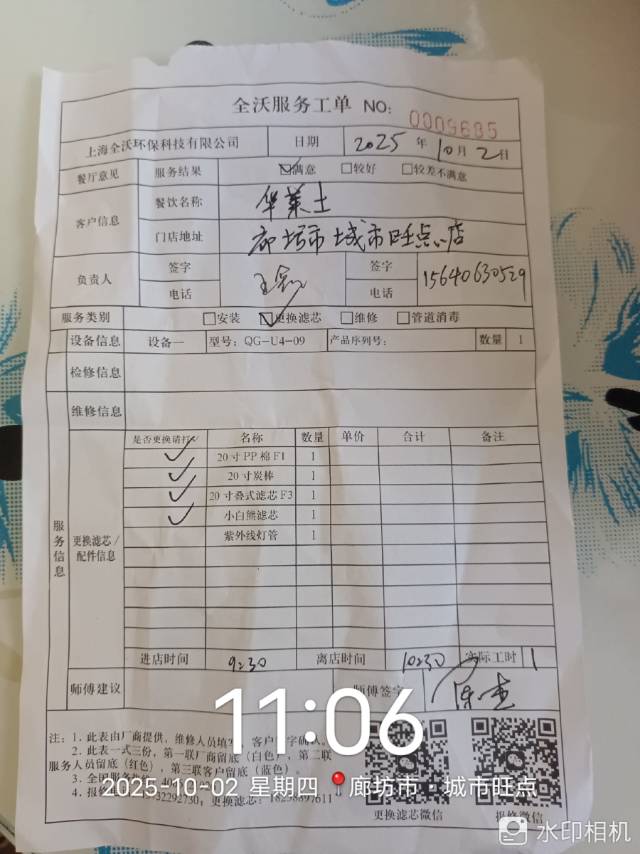 全沃服务工单 NO: 0009635
上海全沃环保科技有限公司 日期 2025 年 10 月 2 日
餐厅意见 服务结果 ☑满意 □较好 □较差不满意
客户信息 餐饮名称 华莱士
门店地址 廊坊市城市旺点店
负责人 签字 签字
电话 电话 15640630529
服务类别 □安装 ☑更换滤芯 □维修 □管道消毒
设备信息 设备一 型号: QG-U4-09 产品序列号: 数量 1
检修信息
维修信息
服务信息
更换滤芯/配件信息
是否更换请打✓ 名称 数量 单价 合计 备注
✓ 20寸PP棉F1 1
✓ 20寸炭棒 1
✓ 20寸叠式滤芯F3 1
✓ 小白熊滤芯 1
紫外线灯管 1
进店时间 9:30 离店时间 10:30 实际工时 1
师傅建议 师傅签字
11:06
注: 1. 此表由厂商提供, 维修人员填写, 客户签字确认
2. 此表一式三份, 第一联厂商留底(白色), 第二联
服务人员留底(红色), 第三联客户留底(蓝色)。
3. 全国服务热线
2025-10-02 星期四 廊坊市·城市旺点
更换滤芯: 18258897611
更换滤芯微信 报修微信
水印相机